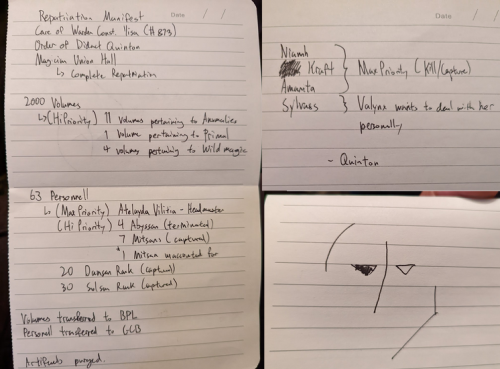 Repatriation Manifest
Date / /
Care of Warden Const. Visa (#873)
Order of District Quinton
Magicum Union Hall
↳ Complete Repatriation
2000 Volumes
↳ (Hi Priority) 11 volumes pertaining to Anomalies
1 Volume pertaining to Primal
4 volumes pertaining to Wild magic
63 Personell
↳ (Max Priority) Vilitia - Headmaster
(Hi Priority) 4 Abyssan (terminated)
7 Mitsans (captured)
* 1 Mitsan unaccounted for
20 Dunsen Rank (captured)
30 Salsen Rank (captured)
Volumes transferred to BPL
Personell transferred to GCB
Artifacts purged.
Date / /
Niamh
Kraft } Max Priority (Kill/Capture)
Amanita
Sylvass } Valynx wants to deal with her
personally
- Quinton